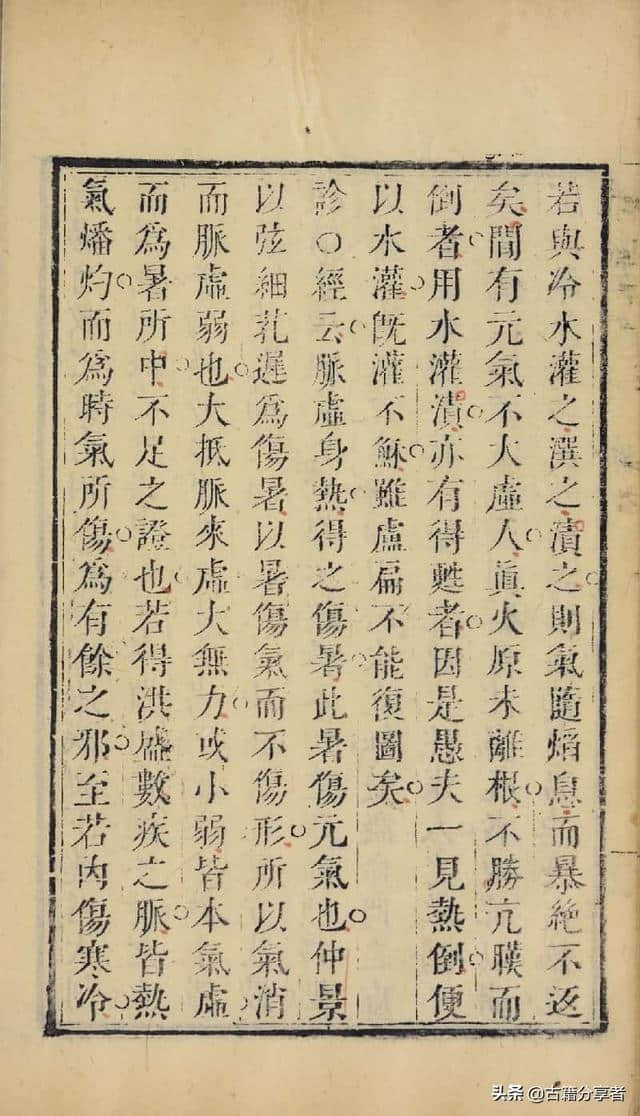 若與冷水灌之潠之漬之則氣隨焰息而暴絕不返
矣間有元氣不大虛人眞火原未離根不勝亢暵而
倒者用水灌漬亦有得甦者因是愚夫一見熱倒便
以水灌旣灌不穌雖盧扁不能復圖矣
診〇經云脈虛身熱得之傷暑此暑傷元氣也仲景
以弦細芤遲爲傷暑以暑傷氣而不傷形所以氣消
而脈虛弱也大抵脈來虛大無力或小弱皆本氣虛
而爲暑所中不足之證也若得洪盛數疾之脈皆熱
氣燔灼而爲時氣所傷爲有餘之邪至若內傷寒冷
头条@古籍分享者